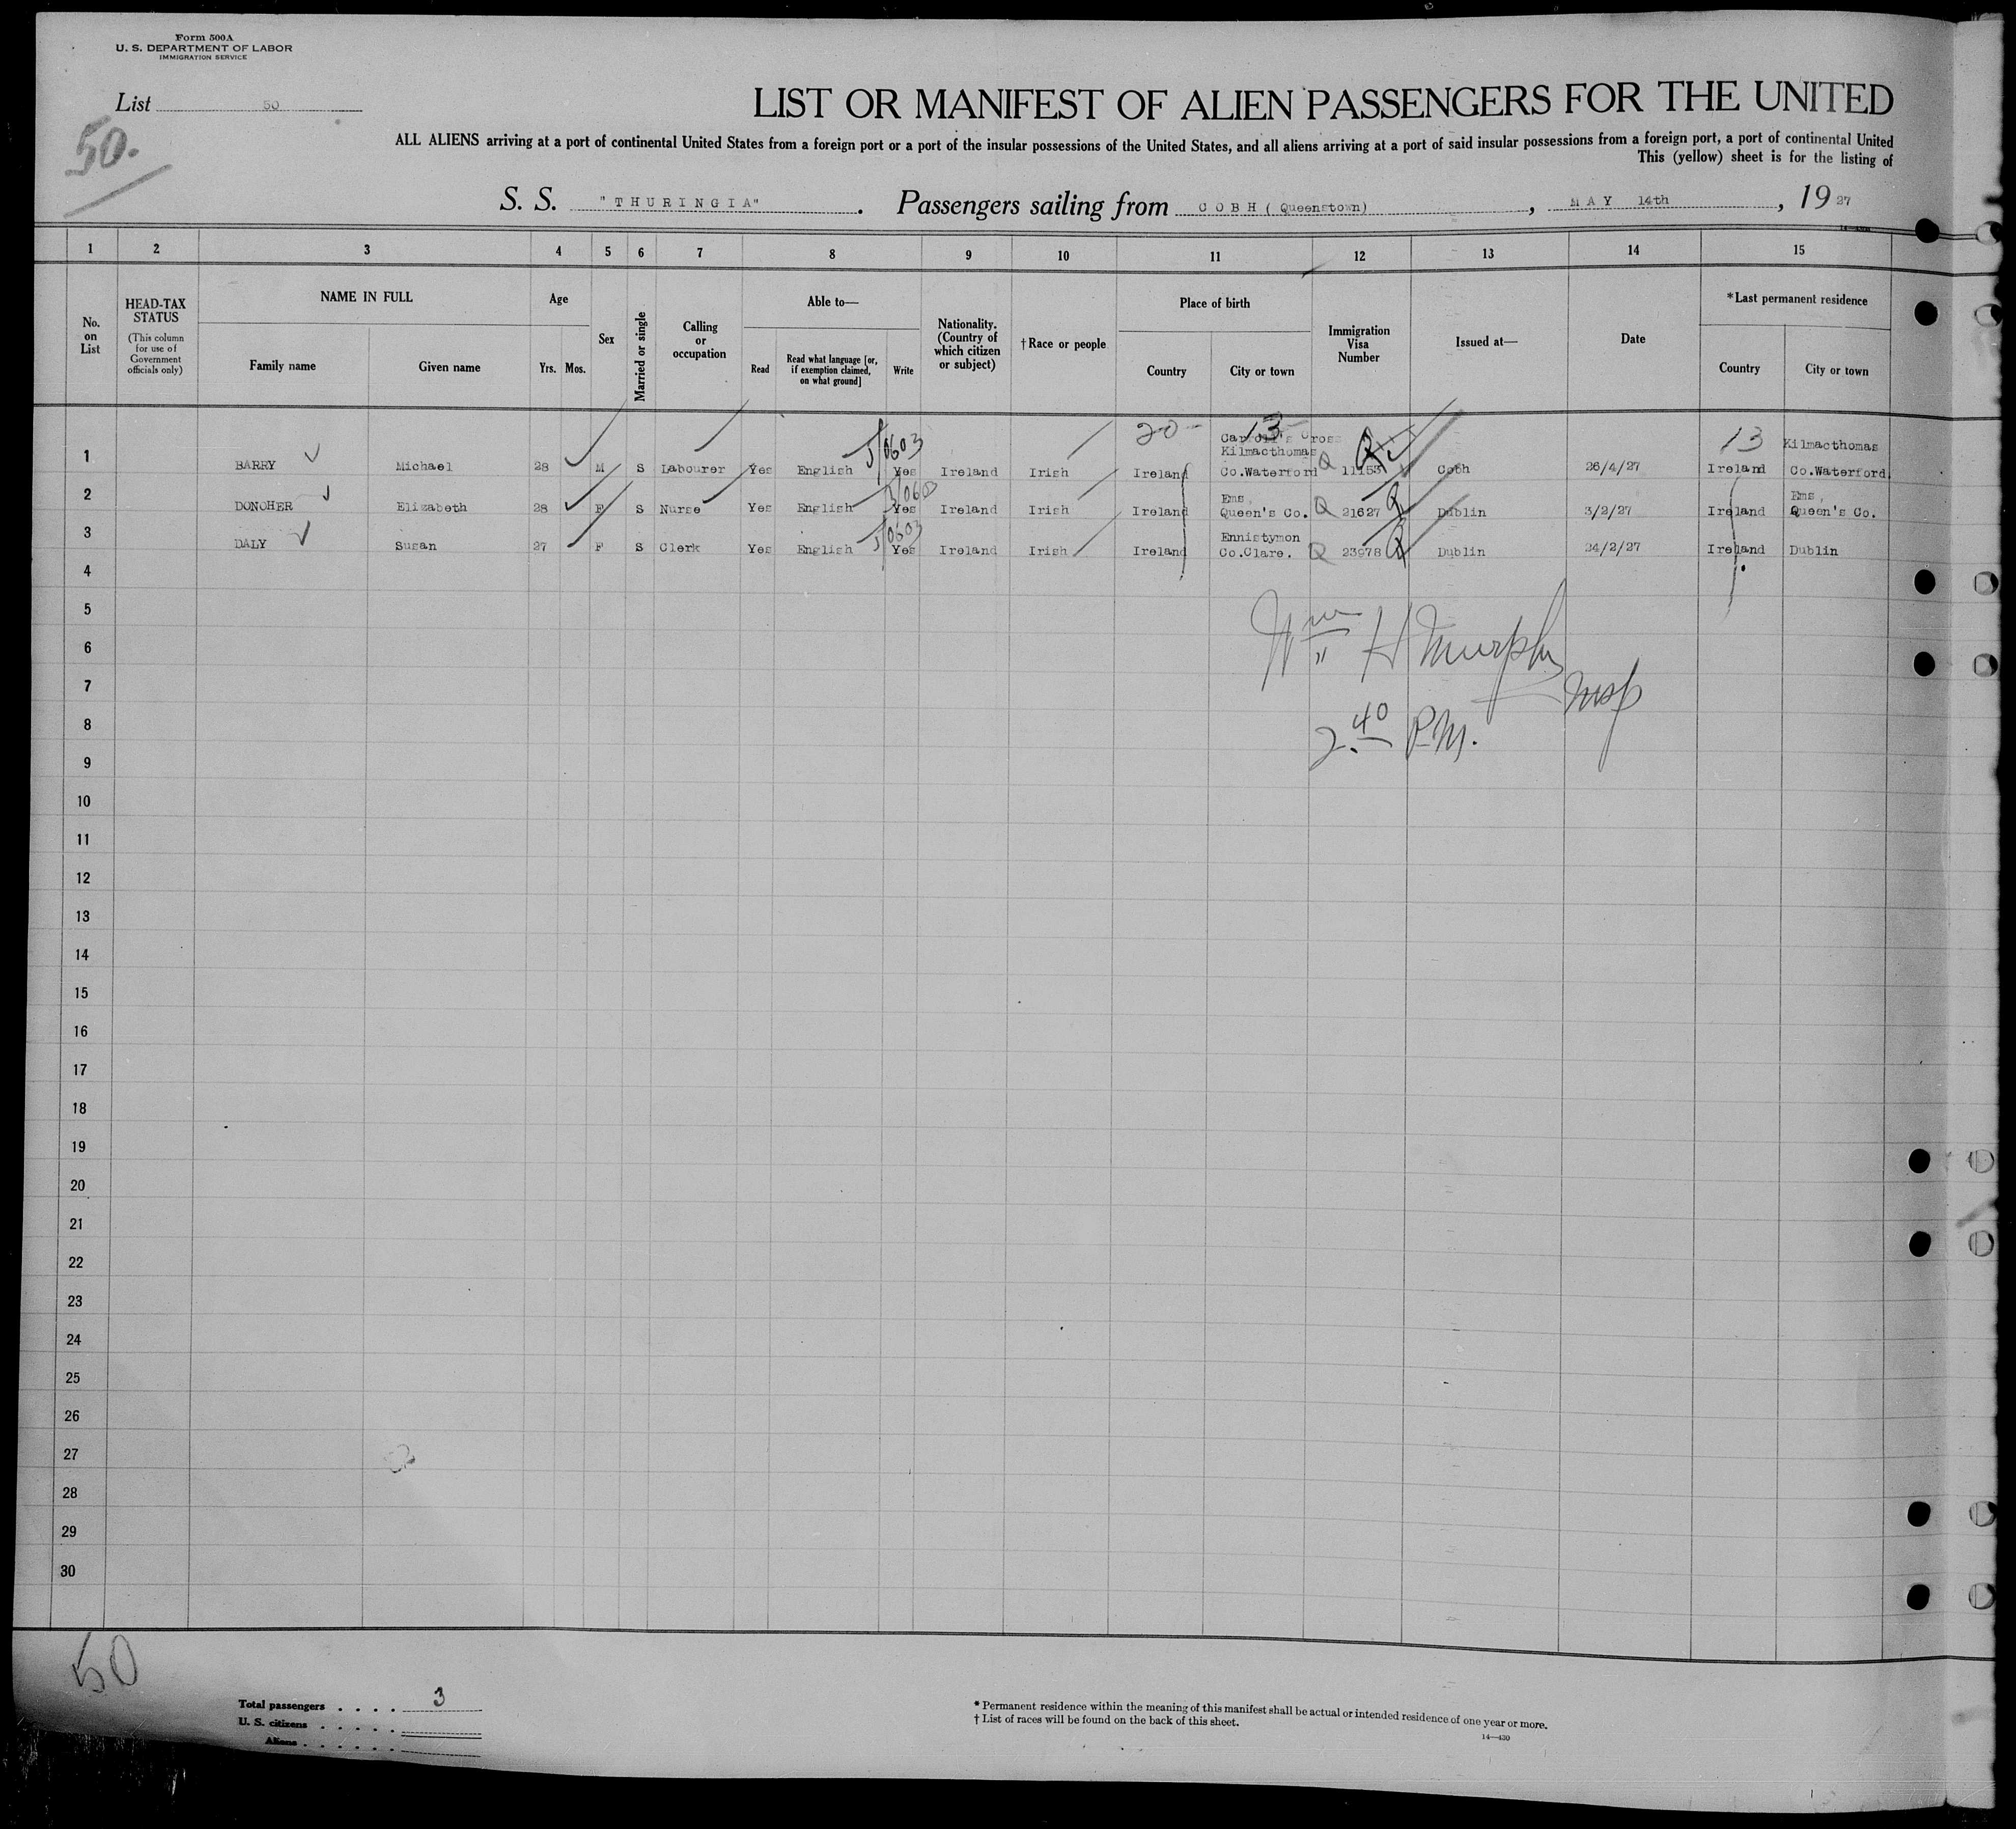 Form 500A
U. S. DEPARTMENT OF LABOR
IMMIGRATION SERVICE
List 50
50.
LIST OR MANIFEST OF ALIEN PASSENGERS FOR THE UNITED
ALL ALIENS arriving at a port of continental United States from a foreign port or a port of the insular possessions of the United States, and all aliens arriving at a port of said insular possessions from a foreign port, a port of continental United
This (yellow) sheet is for the listing of
S. S. "THURINGIA". Passengers sailing from COBH (Queenstown), MAY 14th, 1927
1 2 3 4 5 6 7 8 9 10 11 12 13 14 15
No. on List
HEAD-TAX STATUS
(This column for use of Government officials only)
NAME IN FULL
Family name
Given name
Age
Yrs. Mos.
Sex
Married or single
Calling or occupation
Able to—
Read
Read what language [or, if exemption claimed, on what ground]
Write
Nationality. (Country of which citizen or subject)
†Race or people
Place of birth
Country
City or town
Immigration Visa Number
Issued at—
Date
*Last permanent residence
Country
City or town
20- 13- 13
1 BARRY Michael 28 M S Labourer Yes English 5/0603 Yes Ireland Irish Ireland Carroll's Cross Kilmacthomas Co.Waterford Q 11153 Cobh 26/4/27 Ireland Kilmacthomas Co.Waterford
2 DONOHER Elizabeth 28 F S Nurse Yes English Yes Ireland Irish Ireland Ems, Queen's Co. Q 21627 Dublin 3/2/27 Ireland Ems, Queen's Co.
3 DALY Susan 27 F S Clerk Yes English 5/0603 Yes Ireland Irish Ireland Ennistymon Co.Clare. Q 23978 Dublin 24/2/27 Ireland Dublin
4
5
Wm H Murphy
6
7
Insp
8
2.40 P.M.
9
10
11
12
13
14
15
16
17
18
19
20
21
22
23
24
25
26
27
28
29
30
50
Total passengers . . . . 3
U. S. citizens . . . . .
Aliens . . . . . .
* Permanent residence within the meaning of this manifest shall be actual or intended residence of one year or more.
† List of races will be found on the back of this sheet.
14—430